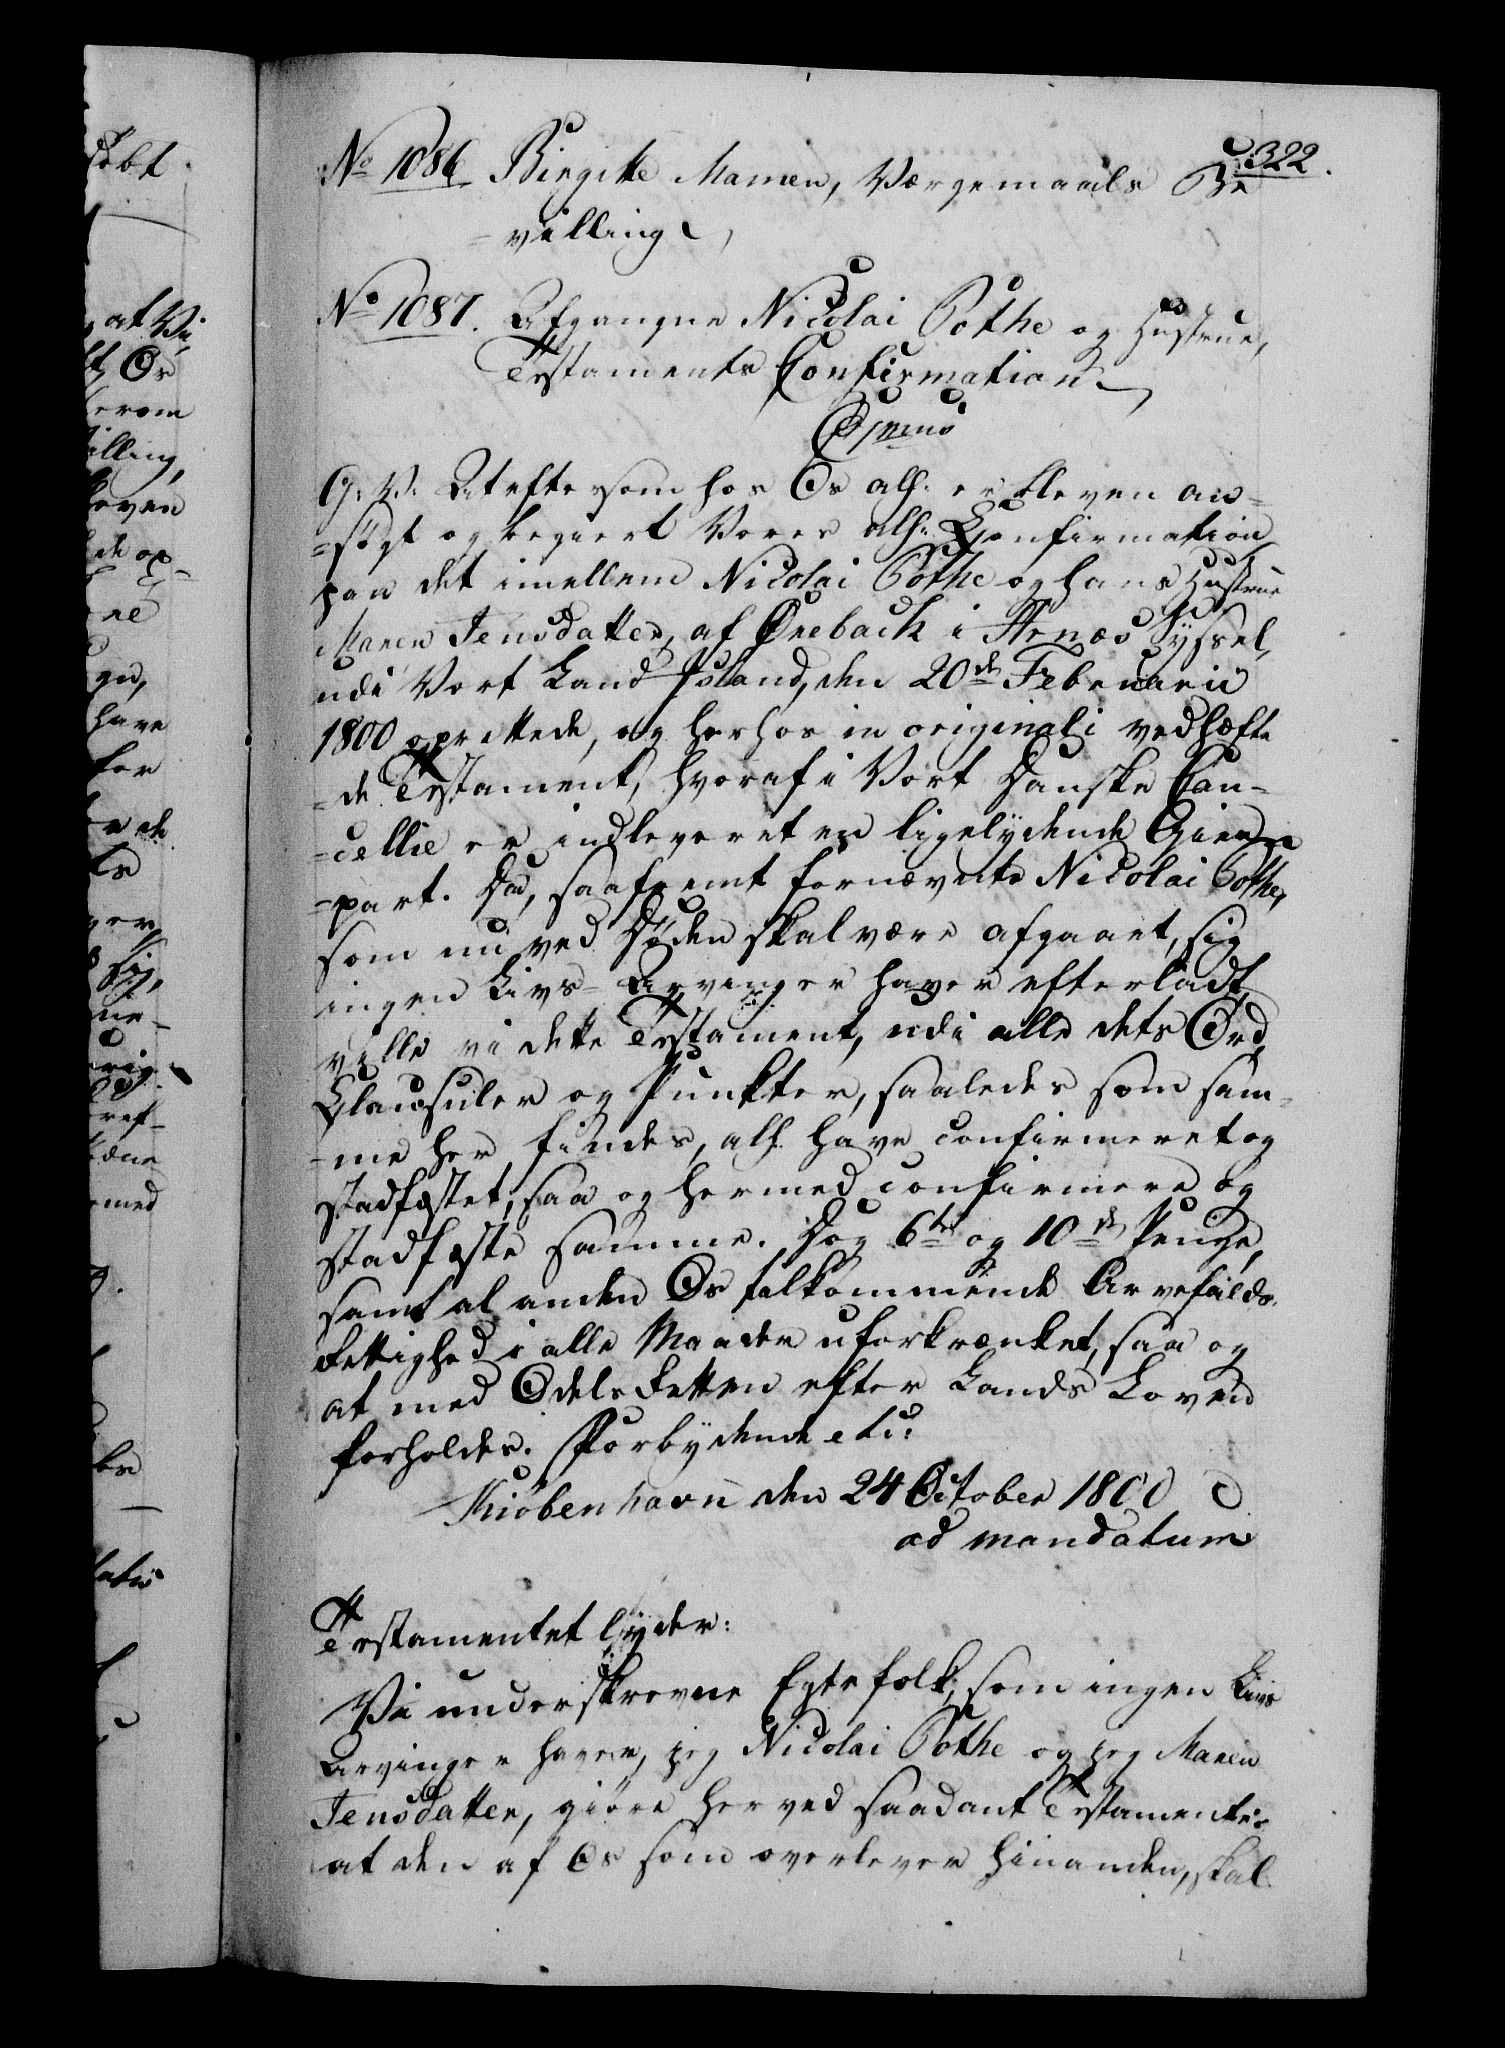 322.
No 1086 Birgitte Mamen, Værgemaals Be
=villing
No 1087. Afgangne Nicolai Pothe og Hustrue,
Testaments Confirmation
G: V: At eftersom hos Os alh: er bleven an=
=søgt og begiert Vores alh: Confirmation
paa det imellem Nicolai Pothe og hans Hustrue
Maren Jensdatter, af i Syssel,
udi Vort Land Island, den 20de Februarii
1800 oprettede, og herhos in originali vedhæfte
=de Testament, hvoraf i Vort Danske Can=
=cellie er indleveret en ligelydende Gien=
=part. Da, saafremt fornævnte Nicolai Pothe,
som nu ved Døden skal være afgaaet, sig
ingen Livs-Arvinger haver efterladt,
ville vi dette Testament, udi alle dets Ord,
Clausuler og Punkter, saaledes som sam=
=me her findes, alh. have confirmeret og
stadfæstet, saa og hermed confirmere og
stadfæste samme. Dog 6te og 10de Penge,
samt al anden Os tilkommende Arvefalds
Rettighed i alle Maader uforkrænket, saa og
at med Odels Retten efter Lands Loven
forholdes. Forbydende etc:
Kiøbenhavn den 24 October 1800
ad mandatum
Testamentet lyder:
Vi underskrevne Egtefolk, som ingen Livs
Arvinger haver, jeg Nicolai Pothe og jeg Maren
Jensdatter, giøre herved saadant Testamente:
at den af Os som overlever hinanden, skal